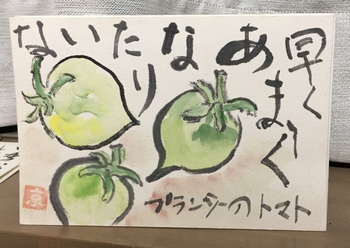 早く
あま〜く
なりたいな
プランターのトマト
京